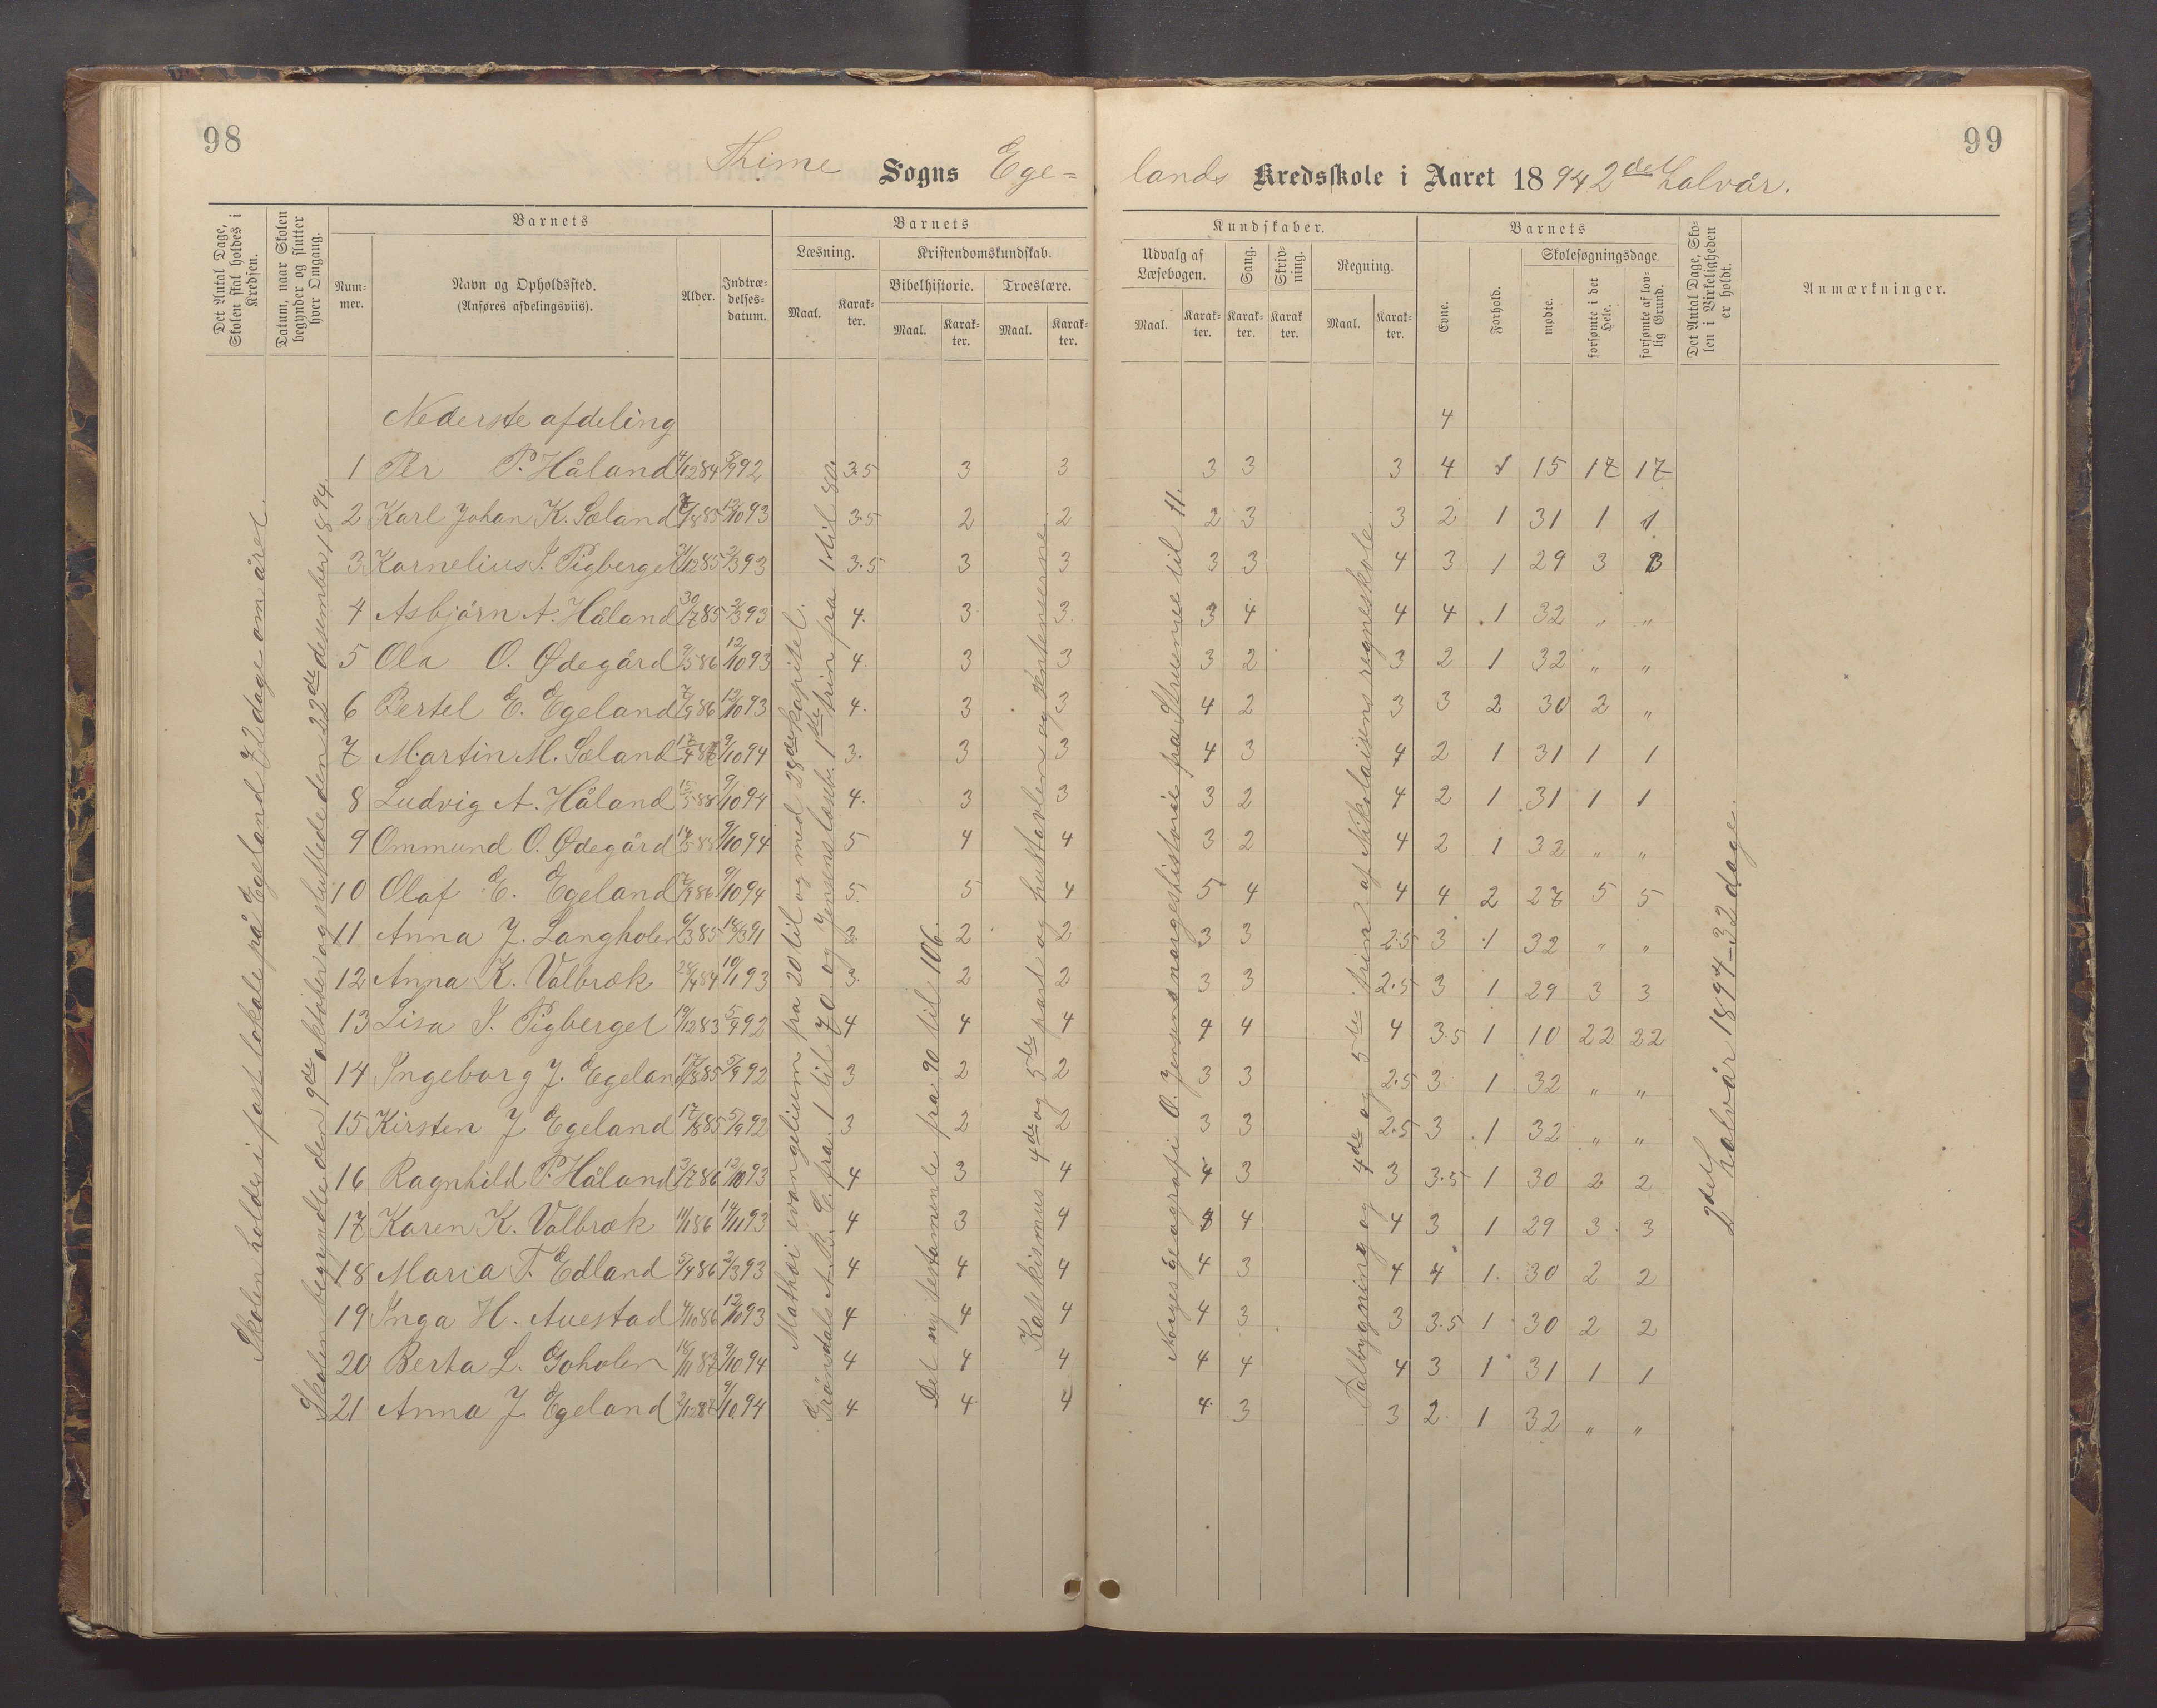 98
99
Thime Sogns Ege=
lands Kredsskole i Aaret 1894 2det halvår.
Det Antal Dage, Skolen skal holdes i Kredsen.
Datum, naar Skolen begynder og slutter hver Omgang.
Barnets
Num-mer.
Navn og Opholdssted.
(Anføres afdelingsviis).
Alder.
Indtræ-delses-datum.
Barnets
Læsning.
Maal.
Karak-ter.
Kristendomskundskab.
Bibelhistorie.
Maal.
Karak-ter.
Troeslære.
Maal.
Karak-ter.
Kundskaber.
Udvalg af Læsebogen.
Maal.
Karak-ter.
Sang.
Karak-ter.
Skriv-ning.
Karak ter.
Regning.
Maal.
Karak-ter.
Barnets
Evne.
Forhold.
Skolesøgningsdage.
mødte.
forsømte i det Hele.
forsømte af lov-lig Grund.
Det Antal Dage, Sko-len i Virkeligheden er holdt.
Anmærkninger.
Skolen holdes i fast lokale på Egeland 72 dage om året.
Skolen begyndte den 9de oktober og sluttede den 22de desember 1894.
Mathæi evangelium fra 20 til og med 28de kapitel.
Gröndals A.B.C. fra 1 til 70 og Jensens læseb. 1ste trin fra 1 til 80.
Det ny testamente fra 90 til 106.
Katekismus 4de og 5te part og hustavlen og sentenserne.
Norges geografi. O. Jensens norgeshistorie fra Struense til 11.
Talbygning og 4de og 5te trin 2 af Nikolaisens regneskole.
2det halvår 1894 - 32 dage.
Nederste afdeling 4
1 Per P. Håland 4/12 84 5/9 92 3.5 3 3 3 3 3 4 1 15 17 17
2 Karl Johan K. Sæland 7/8 85 12/10 93 3.5 2 2 2 3 3 2 1 31 1 1
3 Kornelius J. Pigberget 21/12 85 2/3 93 3.5 3 3 3 3 4 3 1 29 3 3
4 Asbjörn A. Håland 30/7 85 2/3 93 4. 3 3. 3 4 4 4 1 32 " "
5 Ola O. Ødegård 9/5 86 12/10 93 4. 3 3 3 2 3 2 1 32 " "
6 Bertel E. Egeland 7/9 86 12/10 93 4. 3 3 4 2 3 3 2 30 2 "
7 Martin M. Sæland 17/4 87 9/10 94 3. 3 3 4 3 4 2 1 31 1 1
8 Ludvig A. Håland 15/5 88 9/10 94 4. 3 3 3 2 4 2 1 31 1 1
9 Ommund O. Ødegård 14/5 88 9/10 94 5 4 4 3 2 4 2 1 32 " "
10 Olaf E. Egeland 7/9 86 9/10 94 5. 5 4 5 4 4 4 2 27 5 5
11 Anna J. Langholen 6/3 85 18/3 91 3. 2 2 3 3 2.5 3 1 32 " "
12 Anna K. Valbræk 28/4 84 10/1 93 3. 2 2 3 3 2.5 3 1 29 3 3
13 Lisa J. Pigberget 19/12 83 5/4 92 4 4 4 4 4 4 3.5 1 10 22 22
14 Ingeborg J. Egeland 17/8 85 5/9 92 3 2 2 3 3 2.5 3 1 32 " "
15 Kirsten J. Egeland 17/8 85 5/9 92 3 2 2 3 3 2.5 3 1 32 " "
16 Ragnhild P. Håland 3/7 86 12/10 93 4 3 4 4 3 3 3.5 1 30 2 2
17 Karen K. Valbræk 11/1 86 14/11 93 4 3 4 4 4 4 3 1 29 3 3
18 Maria T. Edland 5/4 86 2/3 93 4 4 4 4 3 4 4 1 30 2 2
19 Inga H. Auestad 4/10 86 12/10 93 4 4 4 4 3 3 3.5 1 30 2 2
20 Berta L. Goholen 18/11 87 9/10 94 4 4 4 4 4 4 3 1 31 1 1
21 Anna J. Egeland 2/12 87 9/10 94 4 4 4 4 3 3 2 1 32 " "